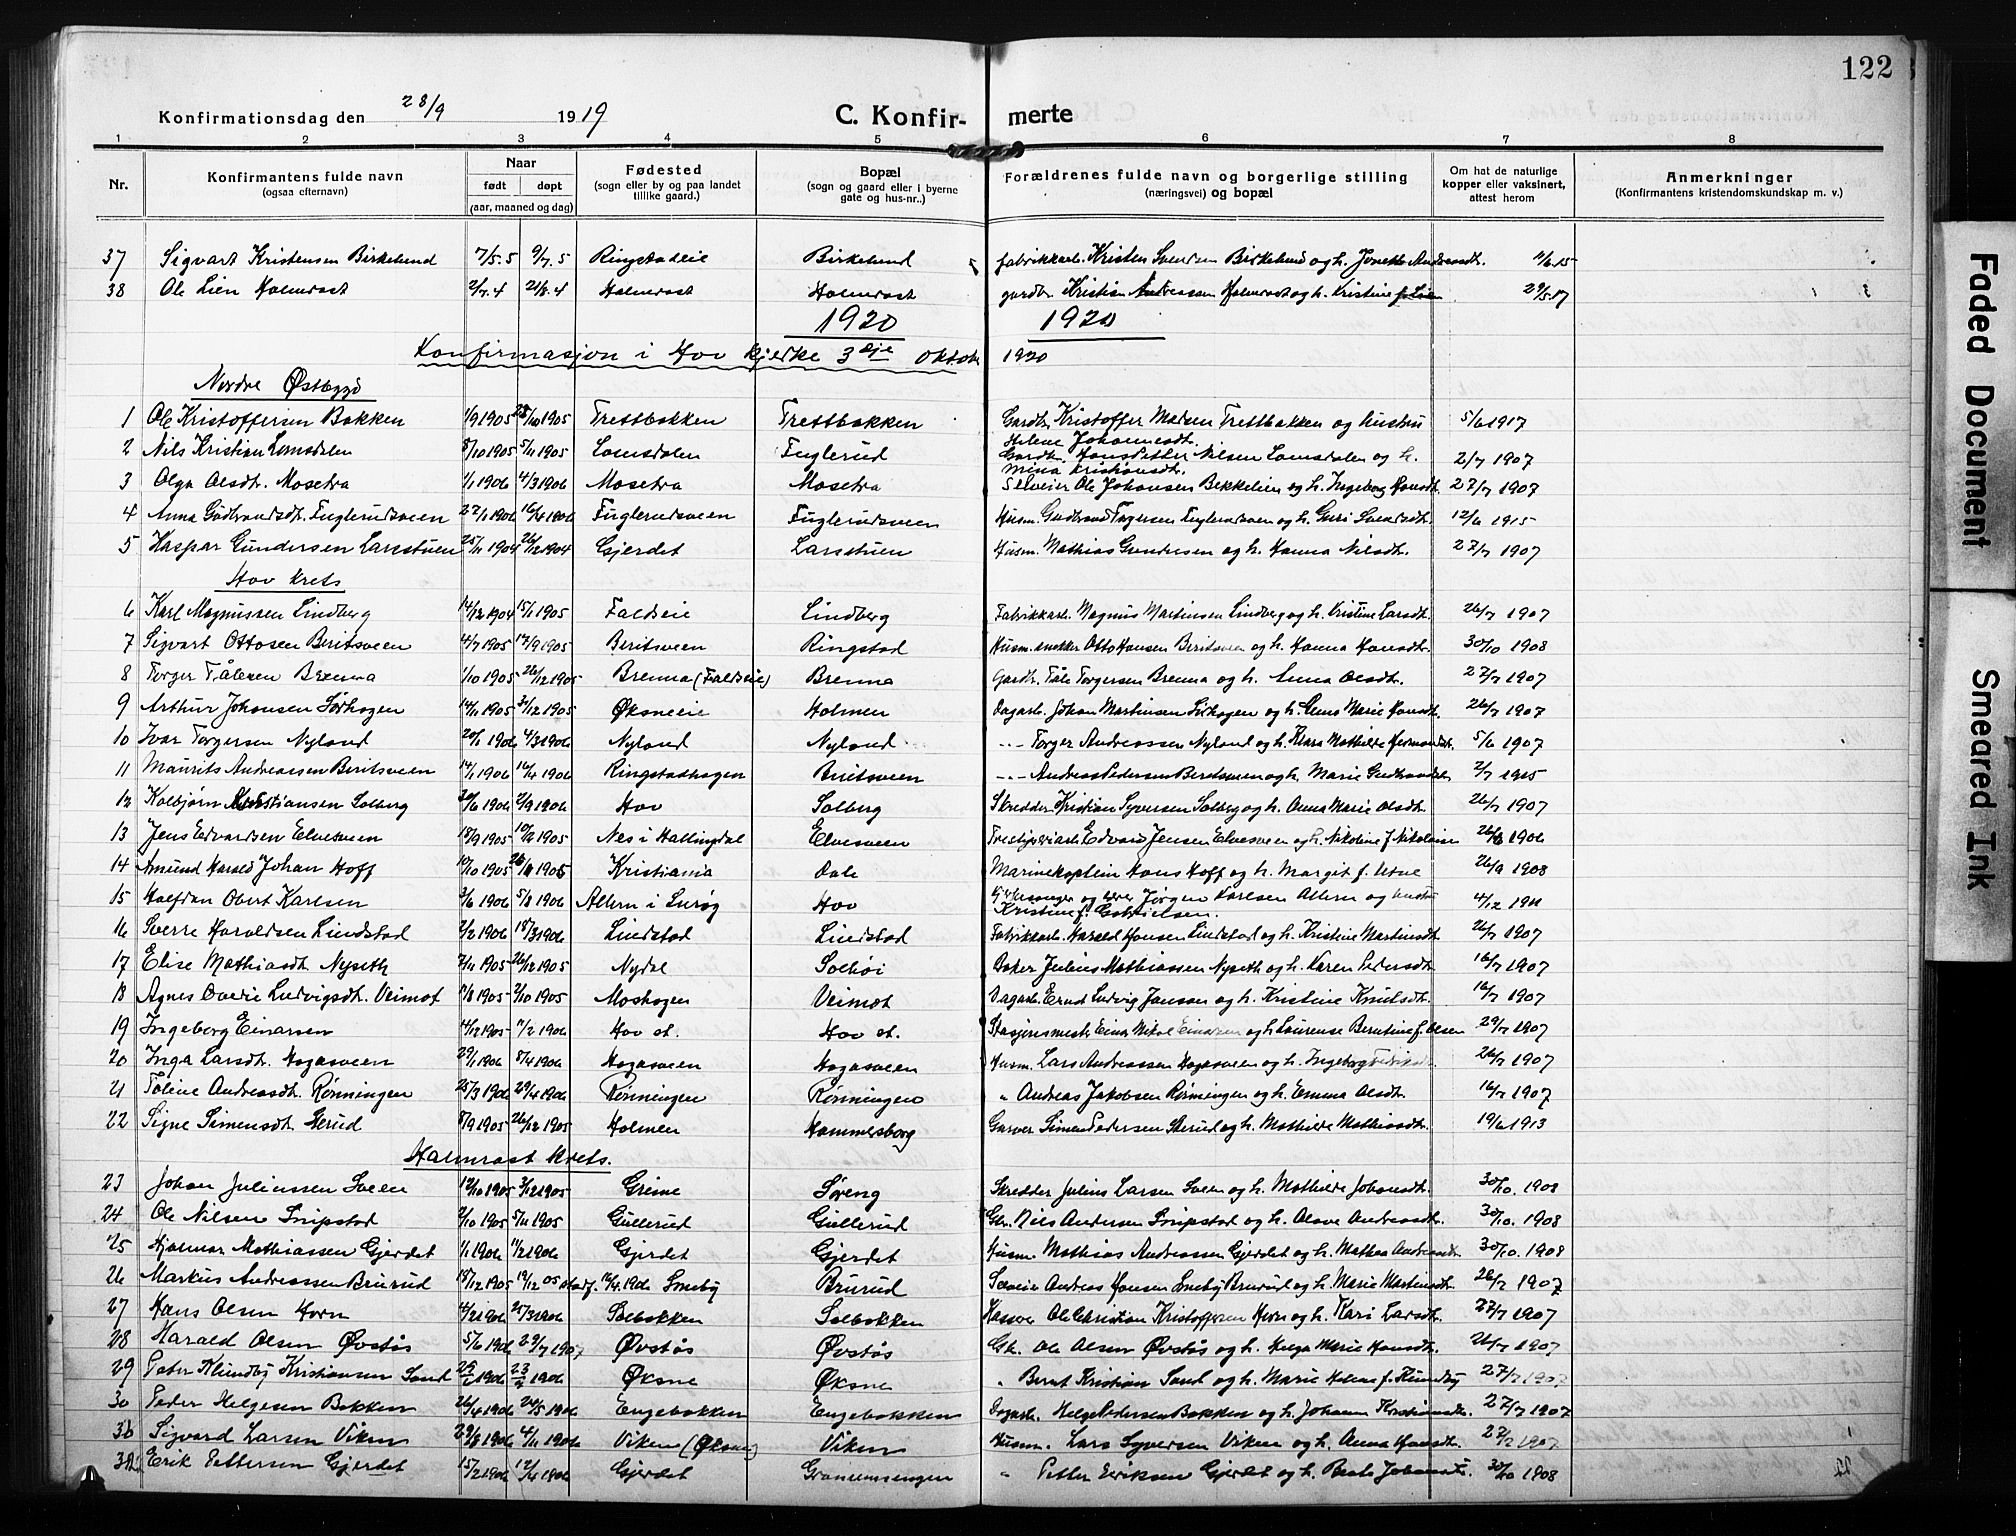 122
Konfirmationsdag den 28/9 1919 C. Konfir- merte
1 2 3 4 5 6 7 8
Nr. Konfirmantens fulde navn (ogsaa efternavn) Naar født døpt (aar, maaned og dag) Fødested (sogn eller by og paa landet tillike gaard.) Bopæl (sogn og gaard eller i byerne gate og hus-nr..) Forældrenes fulde navn og borgerlige stilling (næringsvei) og bopæl Om hat de naturlige kopper eller vaksinert, attest herom Anmerkninger (Konfirmantens kristendomskundskap m. v.)
37 Sigvart Kristensen Birkelund 7/5.5 9/7.5 Ringstadeie Birkelund fabrikkarb. Kristen Svendsen Birkelund og h. Andreasdt. 11/6.15
38 Ole Lien Holmrast 2/7.4 21/8.4 Holmrast Holmrast gardbr. Kristian Andreassen Holmrast og h. Kristine f. Lien 29/5.17
1920 1920
Konfirmasjon i Hov kjerke 3dje oktobr 1920
Nordre Østbygd
1 Ole Kristoffersen Bakken 1/9 1905 /10 1905 Trettbakken Trettbakken Gardbr. Kristoffer Madsen Trettbakken og hustru Helene Johannesdt. 5/6 1917
2 Nils Kristian Lomsdalen 8/10 1905 5/11 1905 Lomsdalen Fuglerud Gardbr. Hans Petter Nilsen Lomsdalen og h. Mina Kristiansdt. 2/7 1907
3 Olga Olsdt. Mosetra 1/1 1906 4/3 1906 Mosetra Mosetra Selveier Ole Johansen Bekkelien og h. Ingeborg Hansdt. 27/7 1907
4 Anna Gudbrandsdt. Fuglerudsveen 22/1 1906 16/4 1906 Fuglerudsveen Fuglerudsveen Husm. Gudbrand Torgersen Fuglerudsveen og h. Guri Svendsdt. 12/6 1915
5 Kaspar Gundersen Larsstuen 25/11 1904 26/12 1904 Gjerdet Larsstuen Husm. Mathias Gundersen og h. Hanna Nilsdt. 27/7 1907
Hov krets
6 Karl Magnussen Lindberg 14/12 1904 15/1 1905 Faldseie Lindberg Fabrikkarb. Magnus Martinsen Lindberg og h. Kristine Larsdt. 26/7 1907
7 Sigvart Ottosen Beritsveen 4/7 1905 17/9 1905 Beritsveen Ringstad Husm. snekker Otto Hansen Beritsveen og h. Hanna Hansdt. 30/10 1908
8 Torger Tålesen Brenna 1/10 1905 26/12 1905 Brenna (Faldseie) Brenna Gardbr. Tåle Torgersen Brenna og h. Anna Olsdt. 27/7 1907
9 Arthur Johansen Sørhagen 14/11 1905 31/12 1905 Øksneeie Holmen Dagarb. Johan Martinsen Sørhagen og h. Marie Hansdt. 26/7 1907
10 Ivar Torgersen Nyland 20/1 1906 4/3 1906 Nyland Nyland -"- Torger Andreassen Nyland og h. Klara Mathilde Hermandsdt. 5/6 1907
11 Maurits Andreassen Beritsveen 14/1 1906 16/4 1906 Ringstadhagen Beritsveen -"- Andreas Pedersen Beritsveen og h. Marie Gudbrandsdt. 2/7 1915
12 Kolbjørn Kristiansen Solberg 30/6 1906 2/9 1906 Hov Solberg Skredder Kristian Syversen Solberg og h. Anna Marie Olsdt. 26/7 1907
13 Jens Edvardsen Elvesveen 18/9 1905 1905 Nes i Hallingdal Elvesveen Edvard Jensen Elvesveen og h. Nikoline f. Nikolaisen 1906
14 Amund Harald Johan Hoff 10/10 1905 1905 Kristiania Dale Marinekaptein Hans Hoff og h. Margit f. 26/9 1908
15 Halfdan Obert Karlsen 3/6 1906 5/8 1906 Altern i Lurøy Hov Kirkesanger og lærer Jørgen Karlsen Altern og hustru Kristine f. Gabrielsen. 4/12 1911
16 Sverre Haraldsen Lindstad 2/2 1906 18/3 1906 Lindstad Lindstad Fabrikkarb. Harald Hansen Lindstad og h. Kristine Martinsdt. 26/7 1907
17 Elise Mathiasdt. Nyseth 2/11 1905 26/12 1905 Nydal Solhøi Baker Julius Mathiassen Nyseth og h. Karen Pedersdt. 16/7 1907
18 Agnes Ludvigsdt. Veimot 11/8 1905 2/10 1905 Moshagen Veimot Dagarb. Ludvig Jansson og h. Kristine Knutsdt. 16/7 1907
19 Ingeborg Einarsen 14/12 1905 11/2 1906 Hov st. Hov st. Stasjonsmester Einar Nikol. Einarsen og h. Laurense Berntine f. Olsen 29/7 1907
20 Inga Larsdt. Hagasveen 29/1 1906 8/4 1906 Hagasveen Hagasveen Husm. Lars Andreassen Hagasveen og h. Ingeborg 26/7 1907
21 Toline Andreasdt. Rønningen 25/3 1906 29/4 1906 Rønningen Rønningen " Andreas Jakobsen Rønningen og h. Emma Olsdt. 16/7 1907
22 Signe Simensdt. Skrud 8/9 1905 26/12 1905 Holmen Hammersborg Garver Simen Pedersen Skrud og h. Mathilde Mathiasdt. 19/6 1913
Halmrast krets.
23 Johan Juliussen Sveen 19/10 1905 3/12 1905 Grime Søreng Skredder Julius Larsen Sveen og h. Mathilde Johansdt. 30/10. 1908
24 Ole Nilsen Snipstad 2/10 1905 5/11 1905 Gullerud Gullerud Gbr. Nils Andersen Snipstad og h. Olave Andreasdt. 30/10. 1908
25 Hjalmar Mathiassen Gjerdet 1/1 1906 11/2 1906 Gjerdet Gjerdet Husm. Mathias Andreassen Gjerdet og h. Mathea Andreasdt. 30/10. 1908
26 Markus Andreassen Brurud 18/12 1905 19/12 05 stadf. 16/4 1906 Smeby Brurud Selveier Andreas Hansen Smeby Brurud og h. Marie Martinsdt. 26/7 1907
27 Hans Olsen Horn 4/2 1906 25/3 1906 Solbakken Solbakken Kasserer Ole Christian Kristoffersen Horn og h. Kari Larsdt. 27/7 1907
28 Harald Olsen Øvstås 5/6 1906 29/7 1907 Øvstås Øvstås Gbr. Ole Olsen Øvstås og h. Helga Marie Hansdt. 26/7 1907
29 Peter Klundby Kristiansen Sand 1906 23/2 1906 Øksne Øksne " Bernt Kristian Sand og h. Marie Helene f. Klundby 27/7 1907
30 Peder Helgesen Bakken 26/4 1906 24/5 1906 Engebakken Engebakken Dagarb. Helge Pedersen Bakken og h. Johanne Kristiansdt. 27/7 1907
31 Sigvard Larsen Viken 29/8 1906 4/11 1906 Viken (Øksne) Viken Husm. Lars Syversen Viken og h. Anna Hansdt. 1907
32 Erik Pettersen Gjerdet 15/2 1906 12/4 1906 Gjerdet Granumsengen " Petter Eriksen Gjerdet og h. Beate Johansdt. 30/10 1908
Faded Document
Smeared Ink